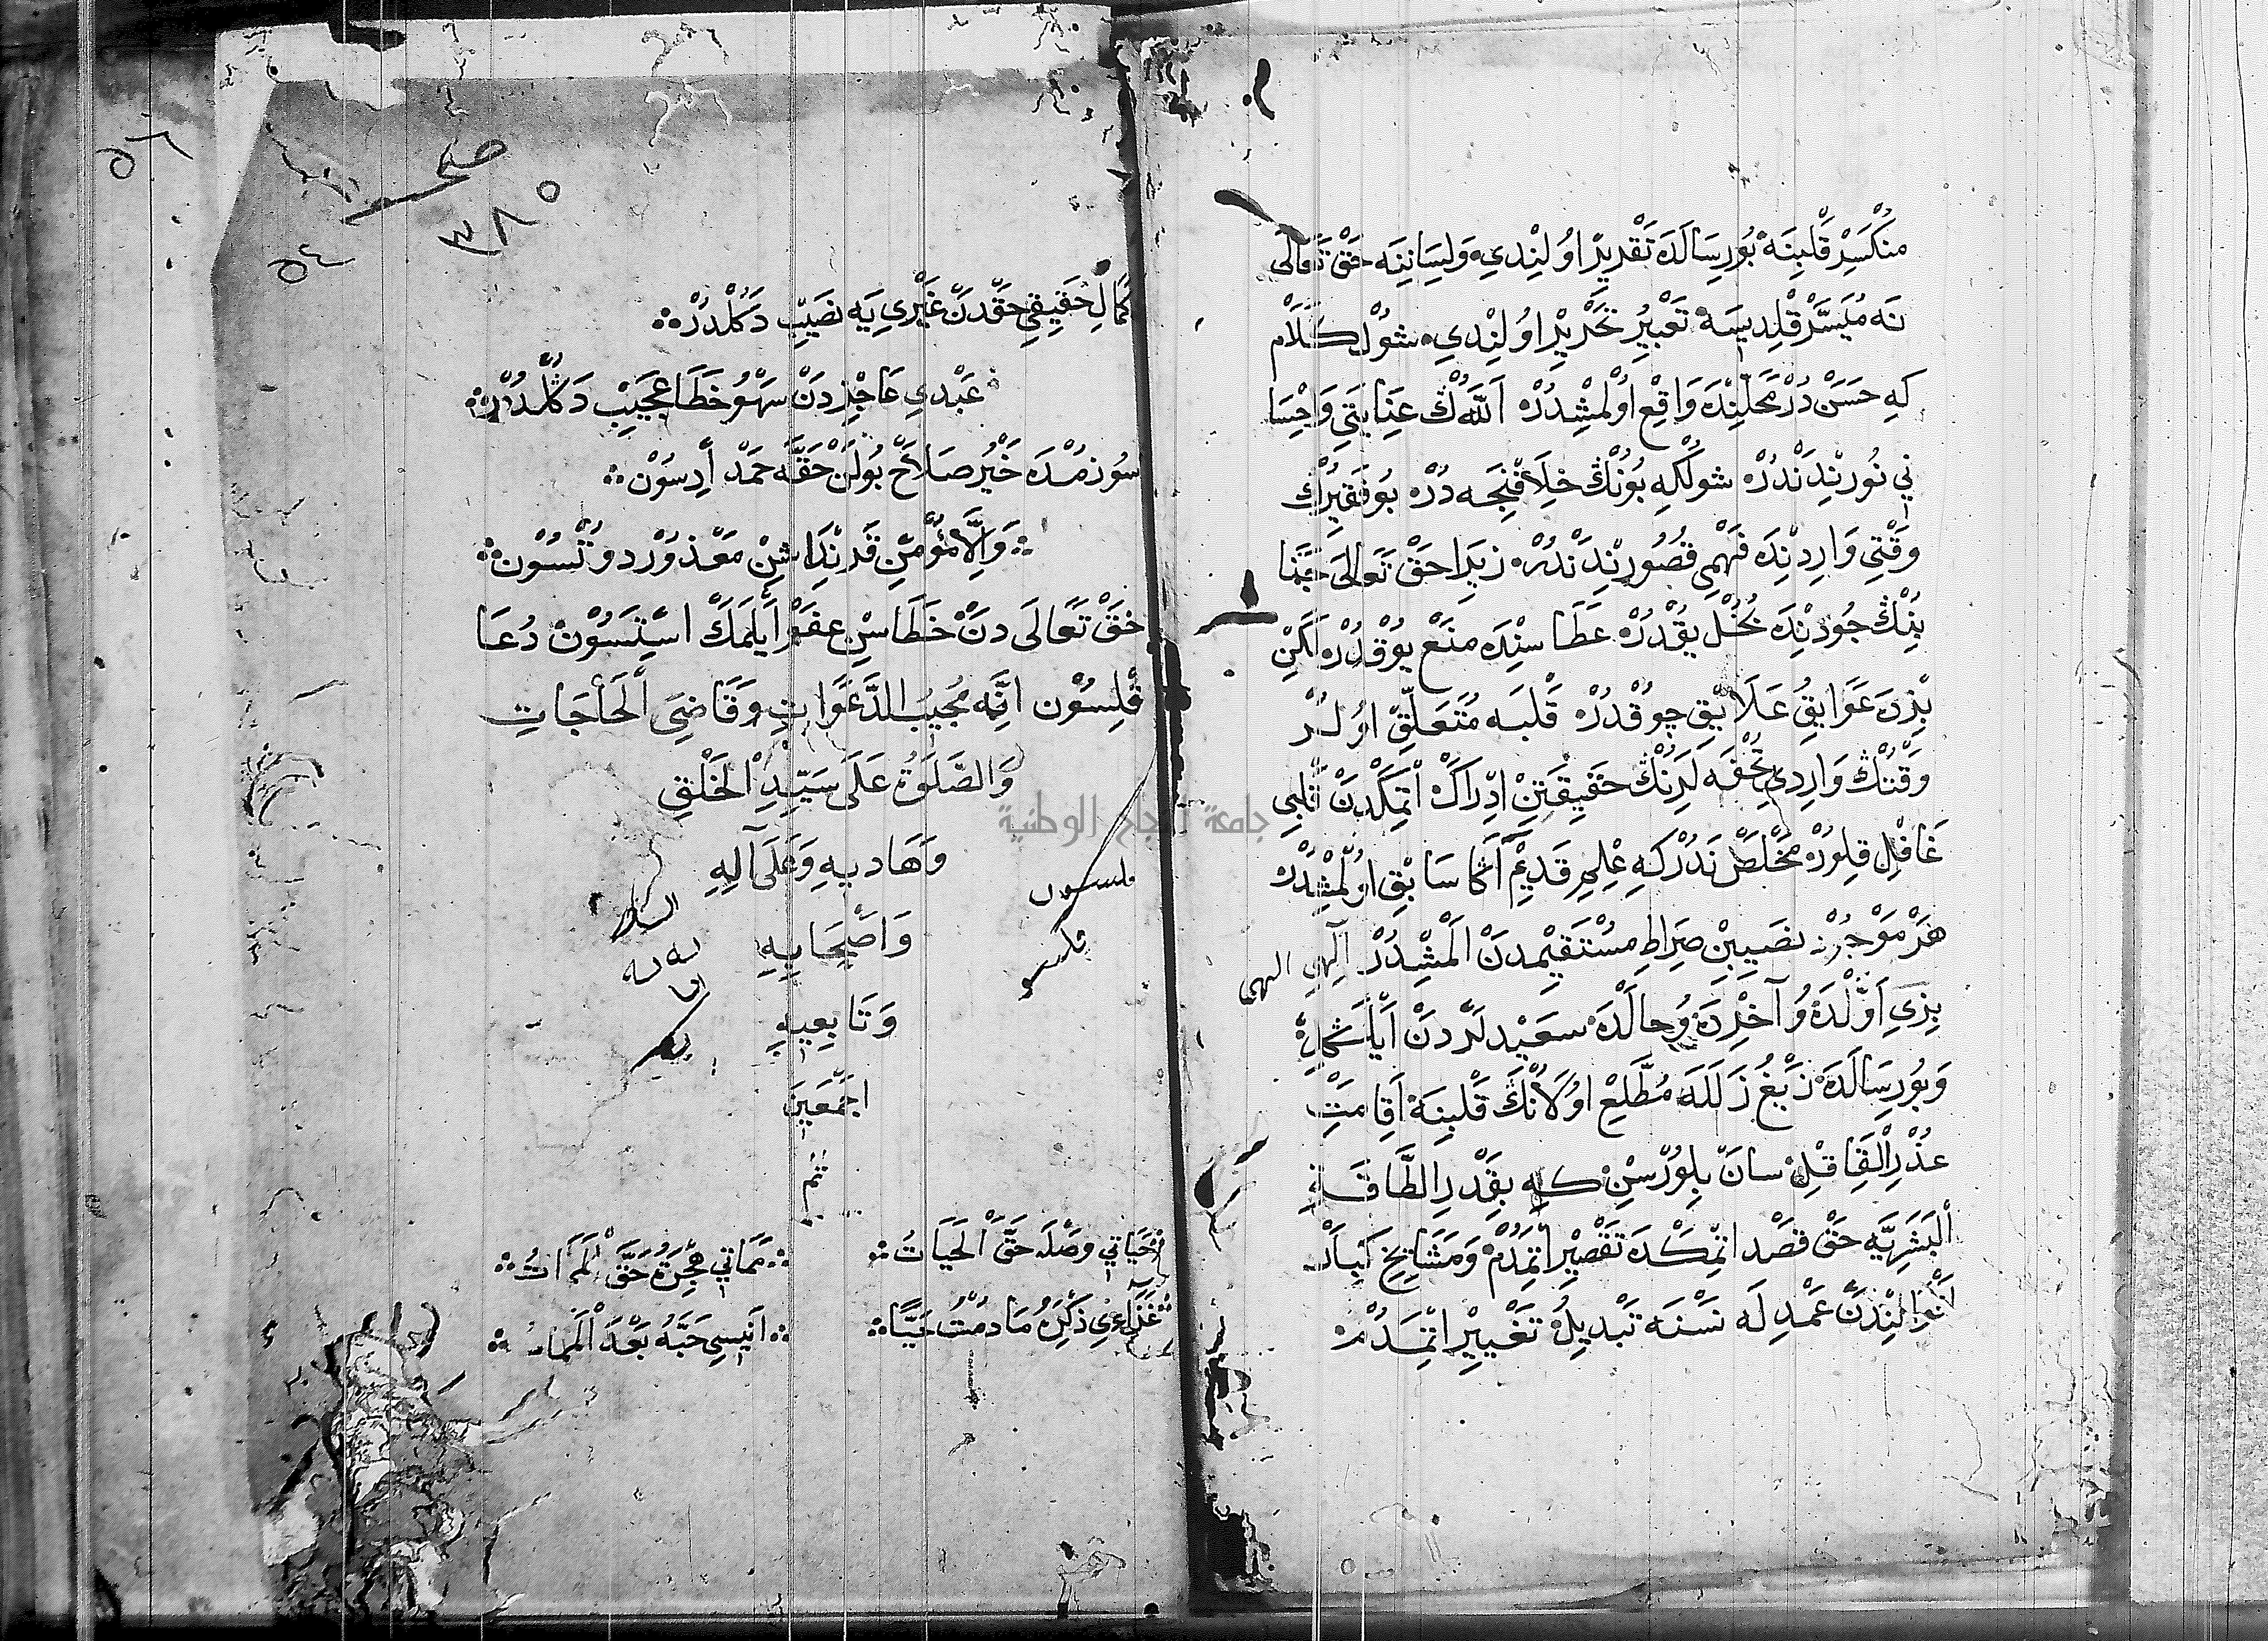 منكسر قلبنه بو رسالده تقدير اولندي ولساننه حق تعالى
نه ميسر قلديسه تعبير تحرير اولندي شول كلام
كه حسن در محلنده واقع اولمشدر اللهڭ عنايتي واحسا
ني نورندندر شولكه بونڭ خلافنجه در بو فقيرڭ
وقتي واردنده فهمي قصورندندر زيرا حق تعالى
بنڭ جودنده بخل يقدر عطاسنده منع يوقدر لكن
بزده عوايق علايق چوقدر قلبه متعلق اولر
وقتڭ واردي تحفه لرنڭ حقيقتن ادراك اتمكدن قلبي
غافل قلور مخلص ندر كه علم قديم اڭا سابق اولمشدر
هر موجز نصيبن صراط مستقيمدن المشدر الهي الهي
بزي اولده و آخرده و حالده سعيدلردن ايله
و بو رسالده زيغ زلله مطلع اولانڭ قلبنه اقامت
عذر القا قل سان بلورسن كه بقدر الطاقة
البشريه حق قصد اتمكده تقصير اتمدم ومشايخ كبار
انوالندن عمد له نسنه تبديل تغيير اتمدم
صح
٣٨٥
٥٤
٥٦
كمال حقيقي حقدن غيري يه نصيب دكلدر
عبدي عاجزدن سهو خطا عجيب دكلدر
سوزمده خير صلاح بولن حقه حمد ادسون
والا مؤمن قرنداشن معذور دوتسون
حق تعالى دن خطاسن عفو ايلمك استسون دعا
قلسون انه مجيب الدعوات وقاضي الحاجات
والصلوة على سيد الخلق
وهاديه وعلى آله
واصحابه
وتابعيه
اجمعين
تم
حياتي وصله حق الحيات مماتي هجره حق الممات
غذاءي ذكره ما دمت حيا انيسي حبه بعد الممات
جامعة النجاح الوطنية